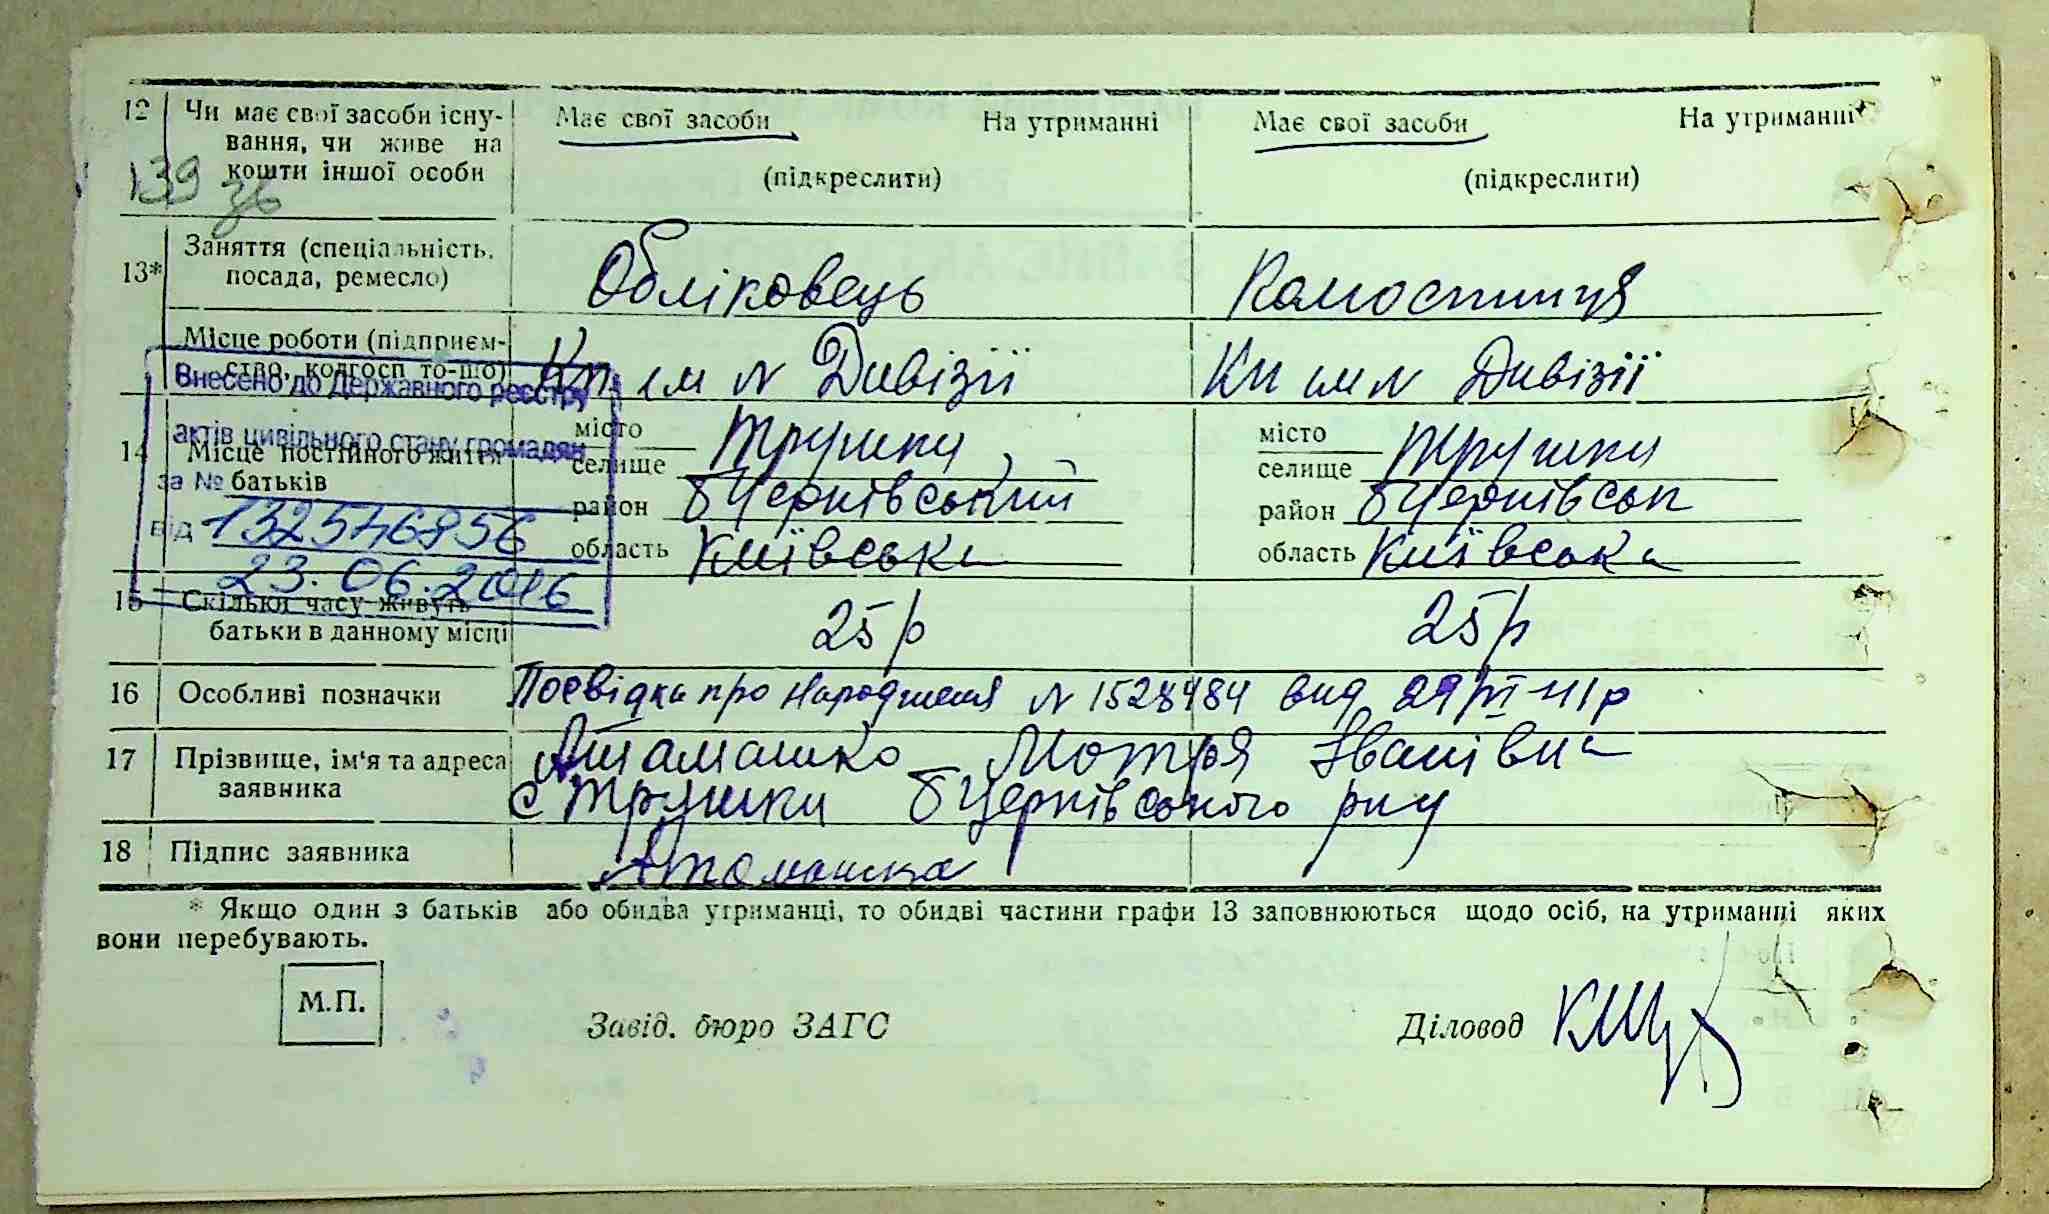 12 Чи має свої засоби існу- Має свої засоби На утриманні Має свої засоби На утриманні
вання, чи живе на
кошти іншої особи (підкреслити) (підкреслити)
139 зв
13* Заняття (спеціальність, Обліковець Колгоспниця
посада, ремесло)
Місце роботи (підприєм- Кп ім № Дивізії Кп ім № Дивізії
ство, колгосп то-що)
Внесено до Державного реєстру
актів цивільного стану громадян
за №
від 132546956
23.06.2016
14 Місце постійного життя місто Трушки місто Трушки
батьків селище селище
район БЦерківський район БЦерківськ
область Київська область Київська
15 Скільки часу живуть 25р 25р
батьки в данному місці
16 Особливі позначки Посвідка про народження № 1528484 вид 29/VI-41р
17 Прізвище, ім'я та адреса Атамашко Мотря Іванівна
заявника с Трушки БЦерківського рну
18 Підпис заявника Атомашка
* Якщо один з батьків або обидва утриманці, то обидві частини графи 13 заповнюються щодо осіб, на утриманні яких
вони перебувають.
М.П. Завід. бюро ЗАГС Діловод